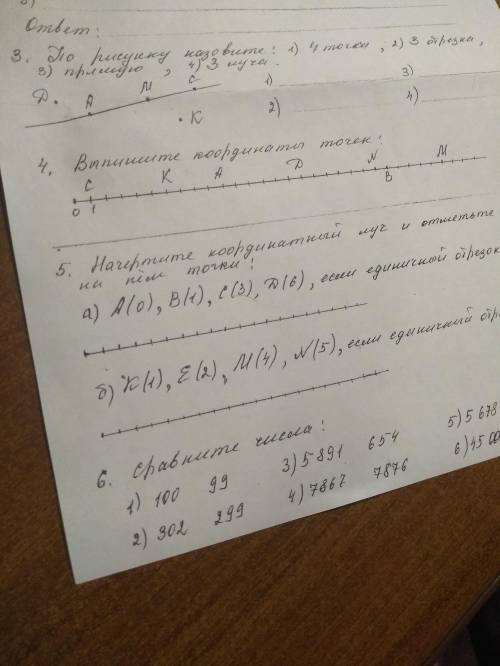 Ответ:
3. По рисунку назовите: 1) 4 точки, 2) 3 отрезка,
3) прямую, 4) 3 луча.
Д А М С К
1) 3)
2) 4)
4. Выпишите координаты точек:
С К А Д N М
0 1 В
5. Начертите координатный луч и отметьте
на нём точки:
а) А(0), В(1), С(3), Д(6), если единичный отрезок
б) К(1), Е(2), М(4), N(5), если единичный отре
6. Сравните числа:
1) 100 99 3) 5891 654 5) 5 678
2) 302 299 4) 7867 7876 6) 45 00